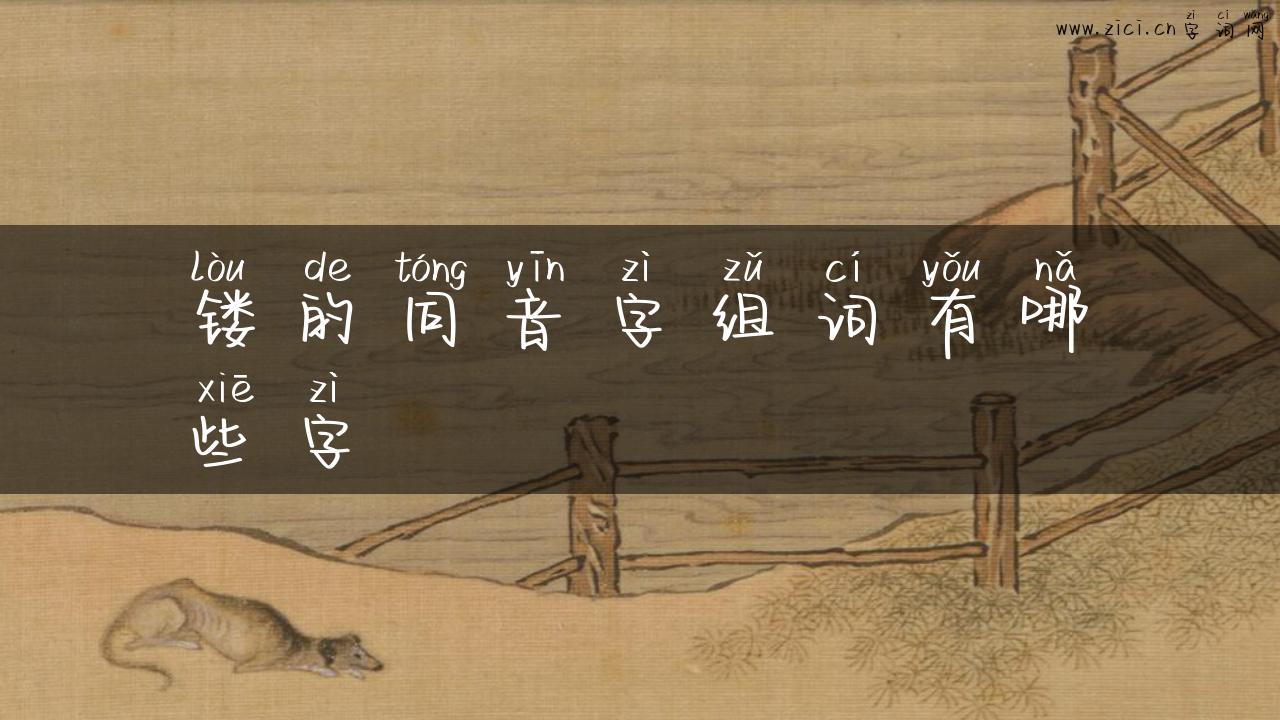 zì cí wǎng
www.zici.cn 字词网
lòu de tóng yīn zì zǔ cí yǒu nǎ
镂的同音字组词有哪
xiē zì
些字